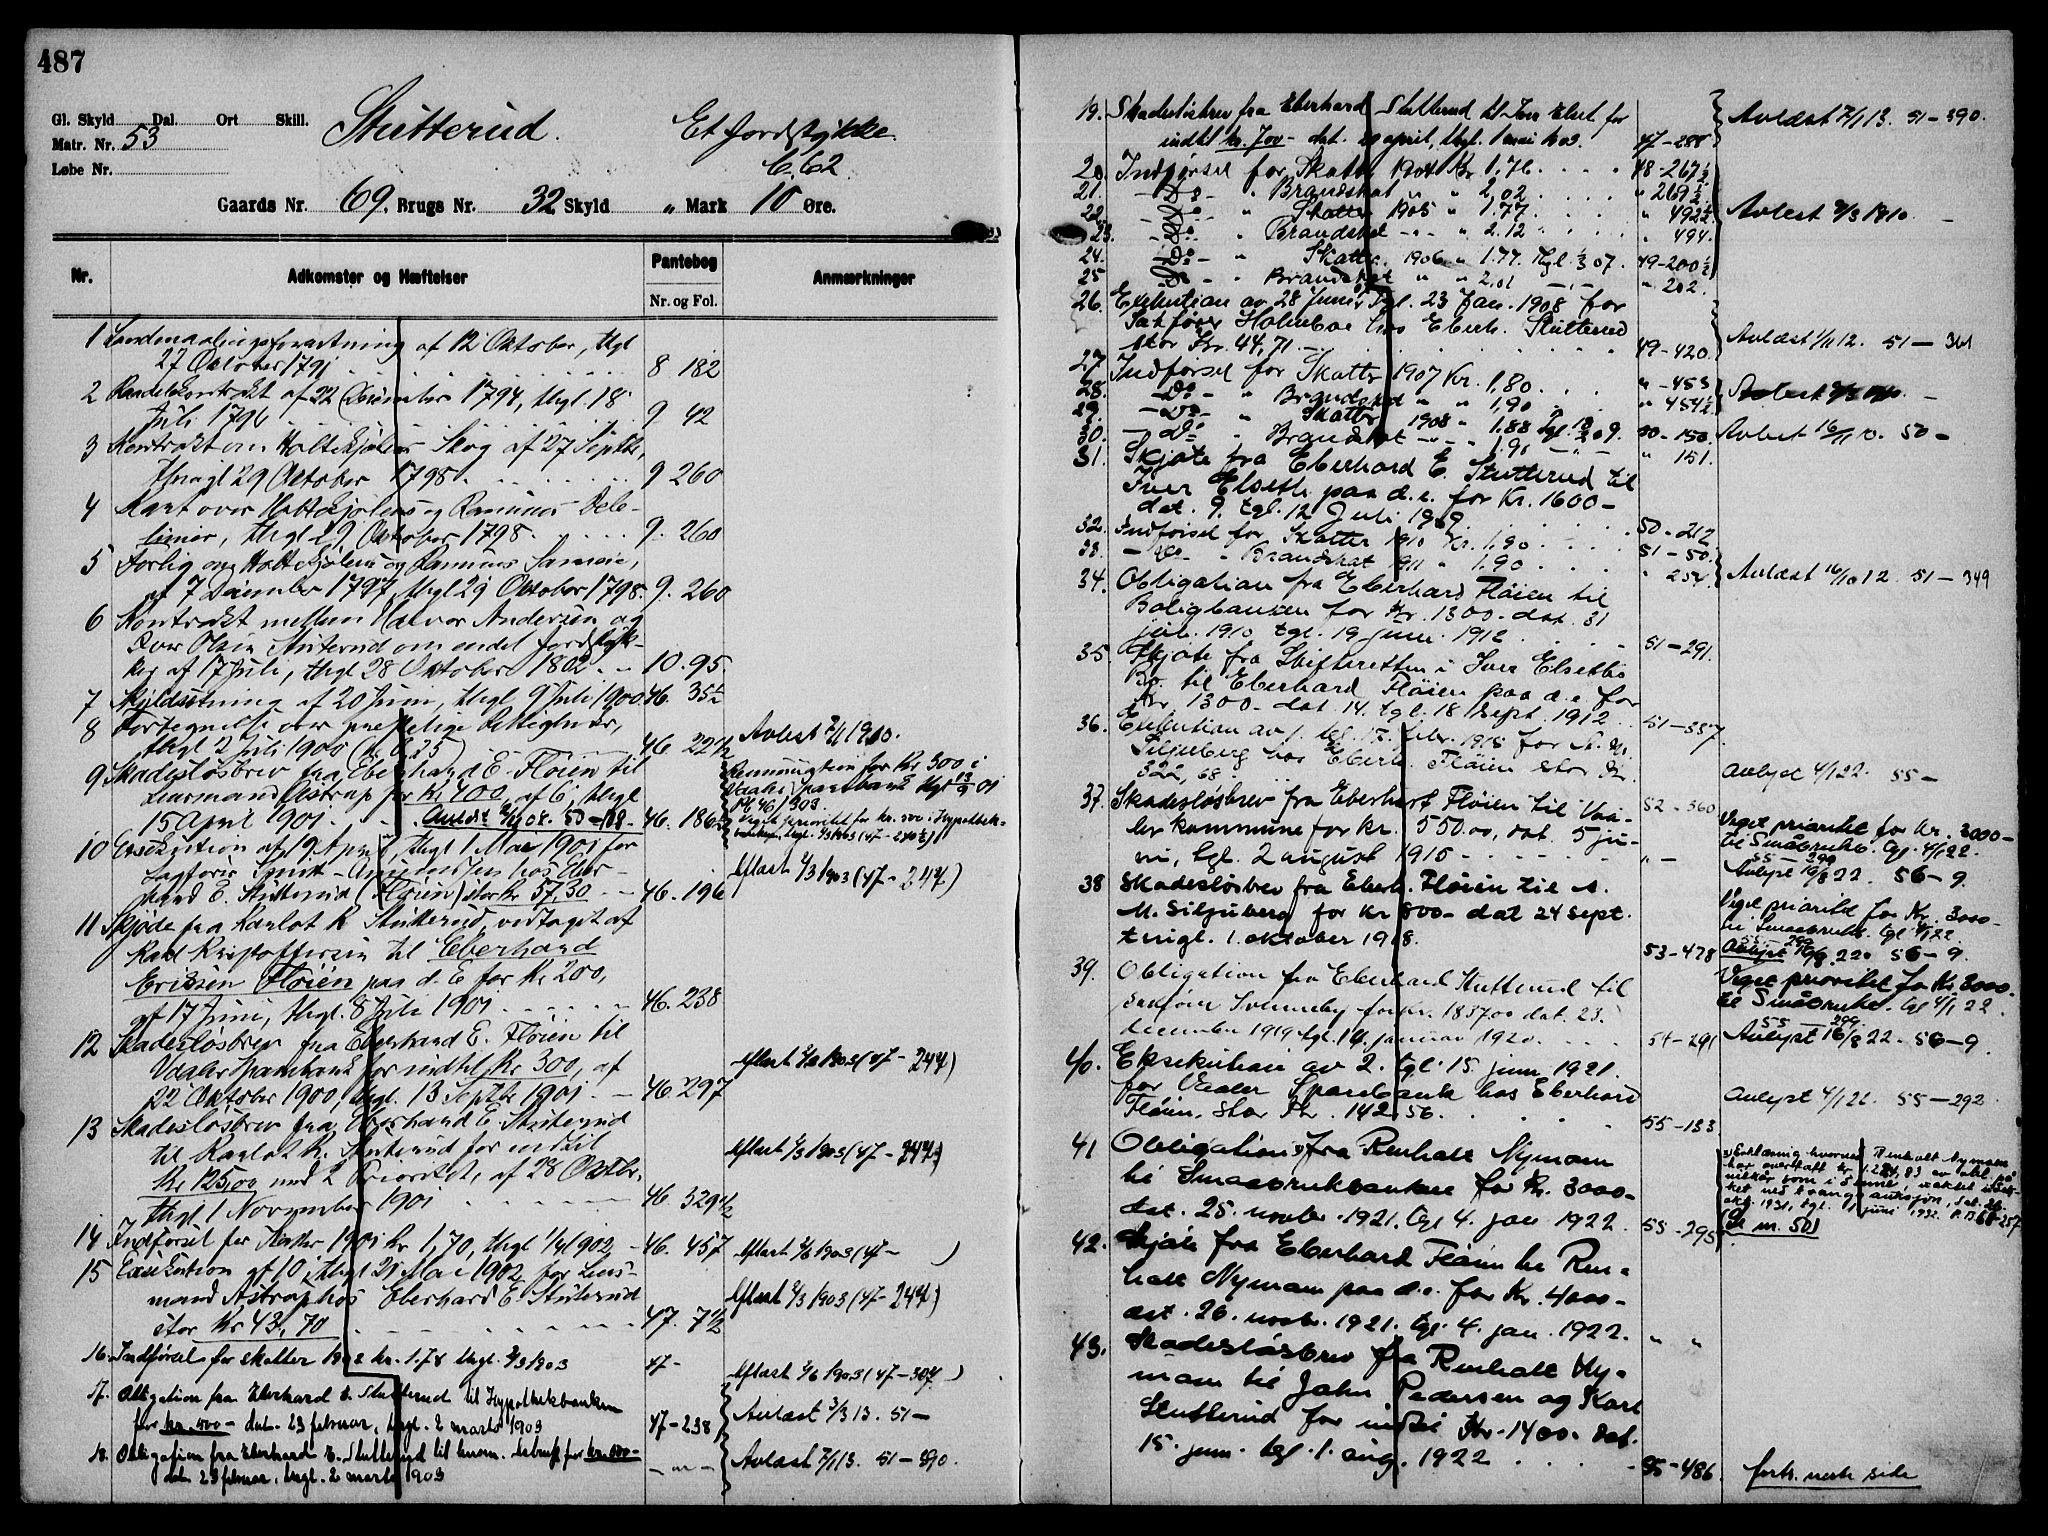 487
Gl. Skyld Dal. Ort Skill.
Stutterud. Et jordstykke
Matr. Nr. 53
Løbe Nr. C. 62
Gaards Nr. 69. Brugs Nr. 32 Skyld " Mark 10 Øre.
Nr. Adkomster og Hæftelser Pantebog Anmærkninger
Nr. og Fol.
1 af 12 Oktober, thgl
27 Oktober 1791 8 182
2 af 22 December 1794, thgl. 18
Juli 1796 9 42
3 Kontrakt om Holtekjølens Skog af 27 Septbr,
thingl 29 Oktober 1798. 9 260
4 Kart over Holtekjølens og Ramunds Dele-
linier, thgl 29 Oktober 1798. 9. 260
5 Forlig om Holtekjølens og
af 7 December 1797 thgl 29 Oktober 1798. 9. 260
6 Kontrakt mellem Halvor Andersen og
Iver Olsen Stuterud om endel jordstyk-
ker af 17 Juli, thgl 28 Oktober 1802. 10. 95
7 Skyldsetning af 20 Juni, thgl. 9 Juli 1900 46. 35
8 Fortegnelse over Rettigheder,
thgl 2 Juli 1900 46. 22½ Avlest 1910.
9 Skadesløsbrev fra Eberhard E. Fløien til
Lensmand Astrup for Kr. 400, af 6, thgl
15 April 1901 08. 50 46. 186
for Kr 300 i
Pb. 46/303
Veget prioritet for kr. 500 i Hypothek-
10 Execution af 9 April, thgl 1 Mai 1901 for
Sagfører hos Eber-
hard E. Stutterud (Fløien) stor kr. 57,30 46. 196
Aflæst 1903 (47-247)
11 Skjøde fra Karlot K Stutterud vedtaget af
Karl Kristoffersen til Eberhard
Eriksen Fløien paa d. E for Kr 200,
af 17 Juni, thgl. 8 Juli 1901 46. 238
12 Skadesløsbrev fra Eberhard E. Fløien til
Vaaler Sparebank for indtil Kr 300, af
22 Oktober 1900, thgl. 13 Septbr 1901 46. 297
Aflæst 1903 (47-247)
13 Skadesløsbrev fra Eberhard E. Stuterud
til Karlot K. Stuterud for indtil
Kr 125,00 med 2 Prioritet, af 28 Oktbr.
thgl 1 November 1901 46. 329½
Aflæst 1903 (47-247)
14 Indførsel for Skatter 1901 kr 1,70, thgl 1902 46. 457 Aflæst 1903 (47- )
15 Execution af 10, thgl 21 Mai 1902 for Lens-
mand Astrup hos Eberhard E. Stuterud
stor Kr 43,70 47. 72
Aflæst 1903 (47-247)
16. Indførsel for skatter 1902 kr. 1.78 thgl. 1903 47- Aflæst 1903 (47-304)
17. Obligation fra Eberhard E. Stutterud til Hypothekbanken
for kr. 500 - dat. 23 februar, thgl. 2 marts 1903 47-238 Avlæst 3/3 13. 51-
18. Obligation fra Eberhard E. Stutterud til lensm. Astrup for kr. 100-
dat. 23 februar. thgl. 2 marts 1903 -"- Avlæst 7/1 13. 51-390.
19. Skadesløsbrev fra Eberhard Stutterud til Iver Elset for
indtil kr. 700- dat. 29 april, thgl. 1 mai 1903. 47-288 Avlæst 7/1 13. 51-390.
20. Indførsel for Skatter 1904 Kr. 1.76 48-267½
21. -Do- " Brandskat " " 2,02 " 269½
22. -Do- " Skatter 1905 " 1.77 " 492½ Avlest 1910.
23. -Do- " Brandskat -"- " 2.12 " 494.
24. -Do- " Skatter 1906 " 1.77. tgl. 07. 49-200½
25 -Do- " Brandskat " " 2,01 " 202.
26. Execution av 28 Juni, tgl. 23 Jan. 1908 for
Sakfører Holmboe hos Eberh. Stutterud
stor Kr. 44,71. 49-420. Avlæst 1/11 12. 51-361
27. Indførsel for Skatter 1907 Kr. 1,80. " -453
28. -Do- " Brandskat " " 1,90 " 454½ Avlest
29. -Do- " Skatter 1908 " 1.88 tgl. 09. 50-150. Avlest 16/11 10. 50-
30. -Do- " Brandskat -"- 1.90 " 151.
31. Skjøte fra Eberhard E. Stutterud til
Iver Elseth paa d.e. for Kr. 1600-
dat. 9. tgl. 12 Juli 1909. 50-212
32. Indførsel for Skatter 1910 Kr. 1,90 51-50.
33. -Do- " Brandskat 1911 " 1,90 " 254. Avlæst 16/10 12. 51-349
34. Obligation fra Eberhard Fløien til
Boligbanken for Kr. 1300- dat. 31
juli. 1910 tgl. 19 juni. 1912 51-291.
35. Skjøte fra Skifteretten i Iver Elseths
Bo. til Eberhard Fløien paa d.e for
Kr. 1300- dat. 14. tgl. 18 Sept. 1912 51-337
36. Execution av 1. tgl. 12. febr. 1915 for
Siljuberg hos Eberh. Fløien stor Kr.
322,68. 52-360 Avlyst 4/1 22. 55-
37. Skadesløsbrev fra Eberhard Fløien til Vaa-
ler kommune for kr. 550.00, dat. 5 ju-
ni, tgl. 2 august 1915 "-
Veget prioritet for Kr. 3000-
til Småbrukb. tgl. 4/1 22.
55-299
Avlyst 16/8 22. 56-9.
38 Skadesløsbrev fra Eberh. Fløien til
M. Siljuberg for kr 800- dat 24 sept.
tingl. 1. oktober 1918. 53-478
Veget prioritet for Kr. 3000-
til Smaabrukb. tgl 4/1 22
55-299
Avlyst 16/8 22 56-9.
39. Obligation fra Eberhard Stutterud til
sakfører Svenneby for kr. 1837.00 dat. 23.
december 1919 tgl. 14. januar 1920 54-291
Veget prioritet for Kr 3000.
til Småbrukb. tgl 4/1 22.
55-299
Avlyst 16/8 22. 56-9.
40. Eksekution av 2. tgl. 15. juni 1921.
for Vaaler Sparebank hos Eberhard
Fløien, stor Kr. 142.56. 55-133 Avlyst 4/1 22. 55-292.
41 Obligation fra Renhalt Nyman
til Smaabrukbanken for Kr. 3000-
dat. 25. novbr. 1921. tgl 4. jan 1922. 55-295
Erklæring hvorved Renholt Nyman
har overtatt kr 1.284,83 av det på
vilkår som i
ket ved tvangsauksjon, dat. 26.
okt. 1931, tgl. 11 juni 1932. P.B. 60-257
(Se nr. 50)
42. Skjøte fra Eberhard Fløien til Ren-
halt Nyman paa d.e. for Kr. 4000-
dat. 26. novbr. 1921. tgl. 4. jan. 1922. " "
43. Skadesløsbrev fra Renhalt Ny-
man til John Pedersen og Karl
Stutterud for indtil Kr. 1400- dat.
15. juni. tgl. 1. aug. 1922 55-486. forts. neste side